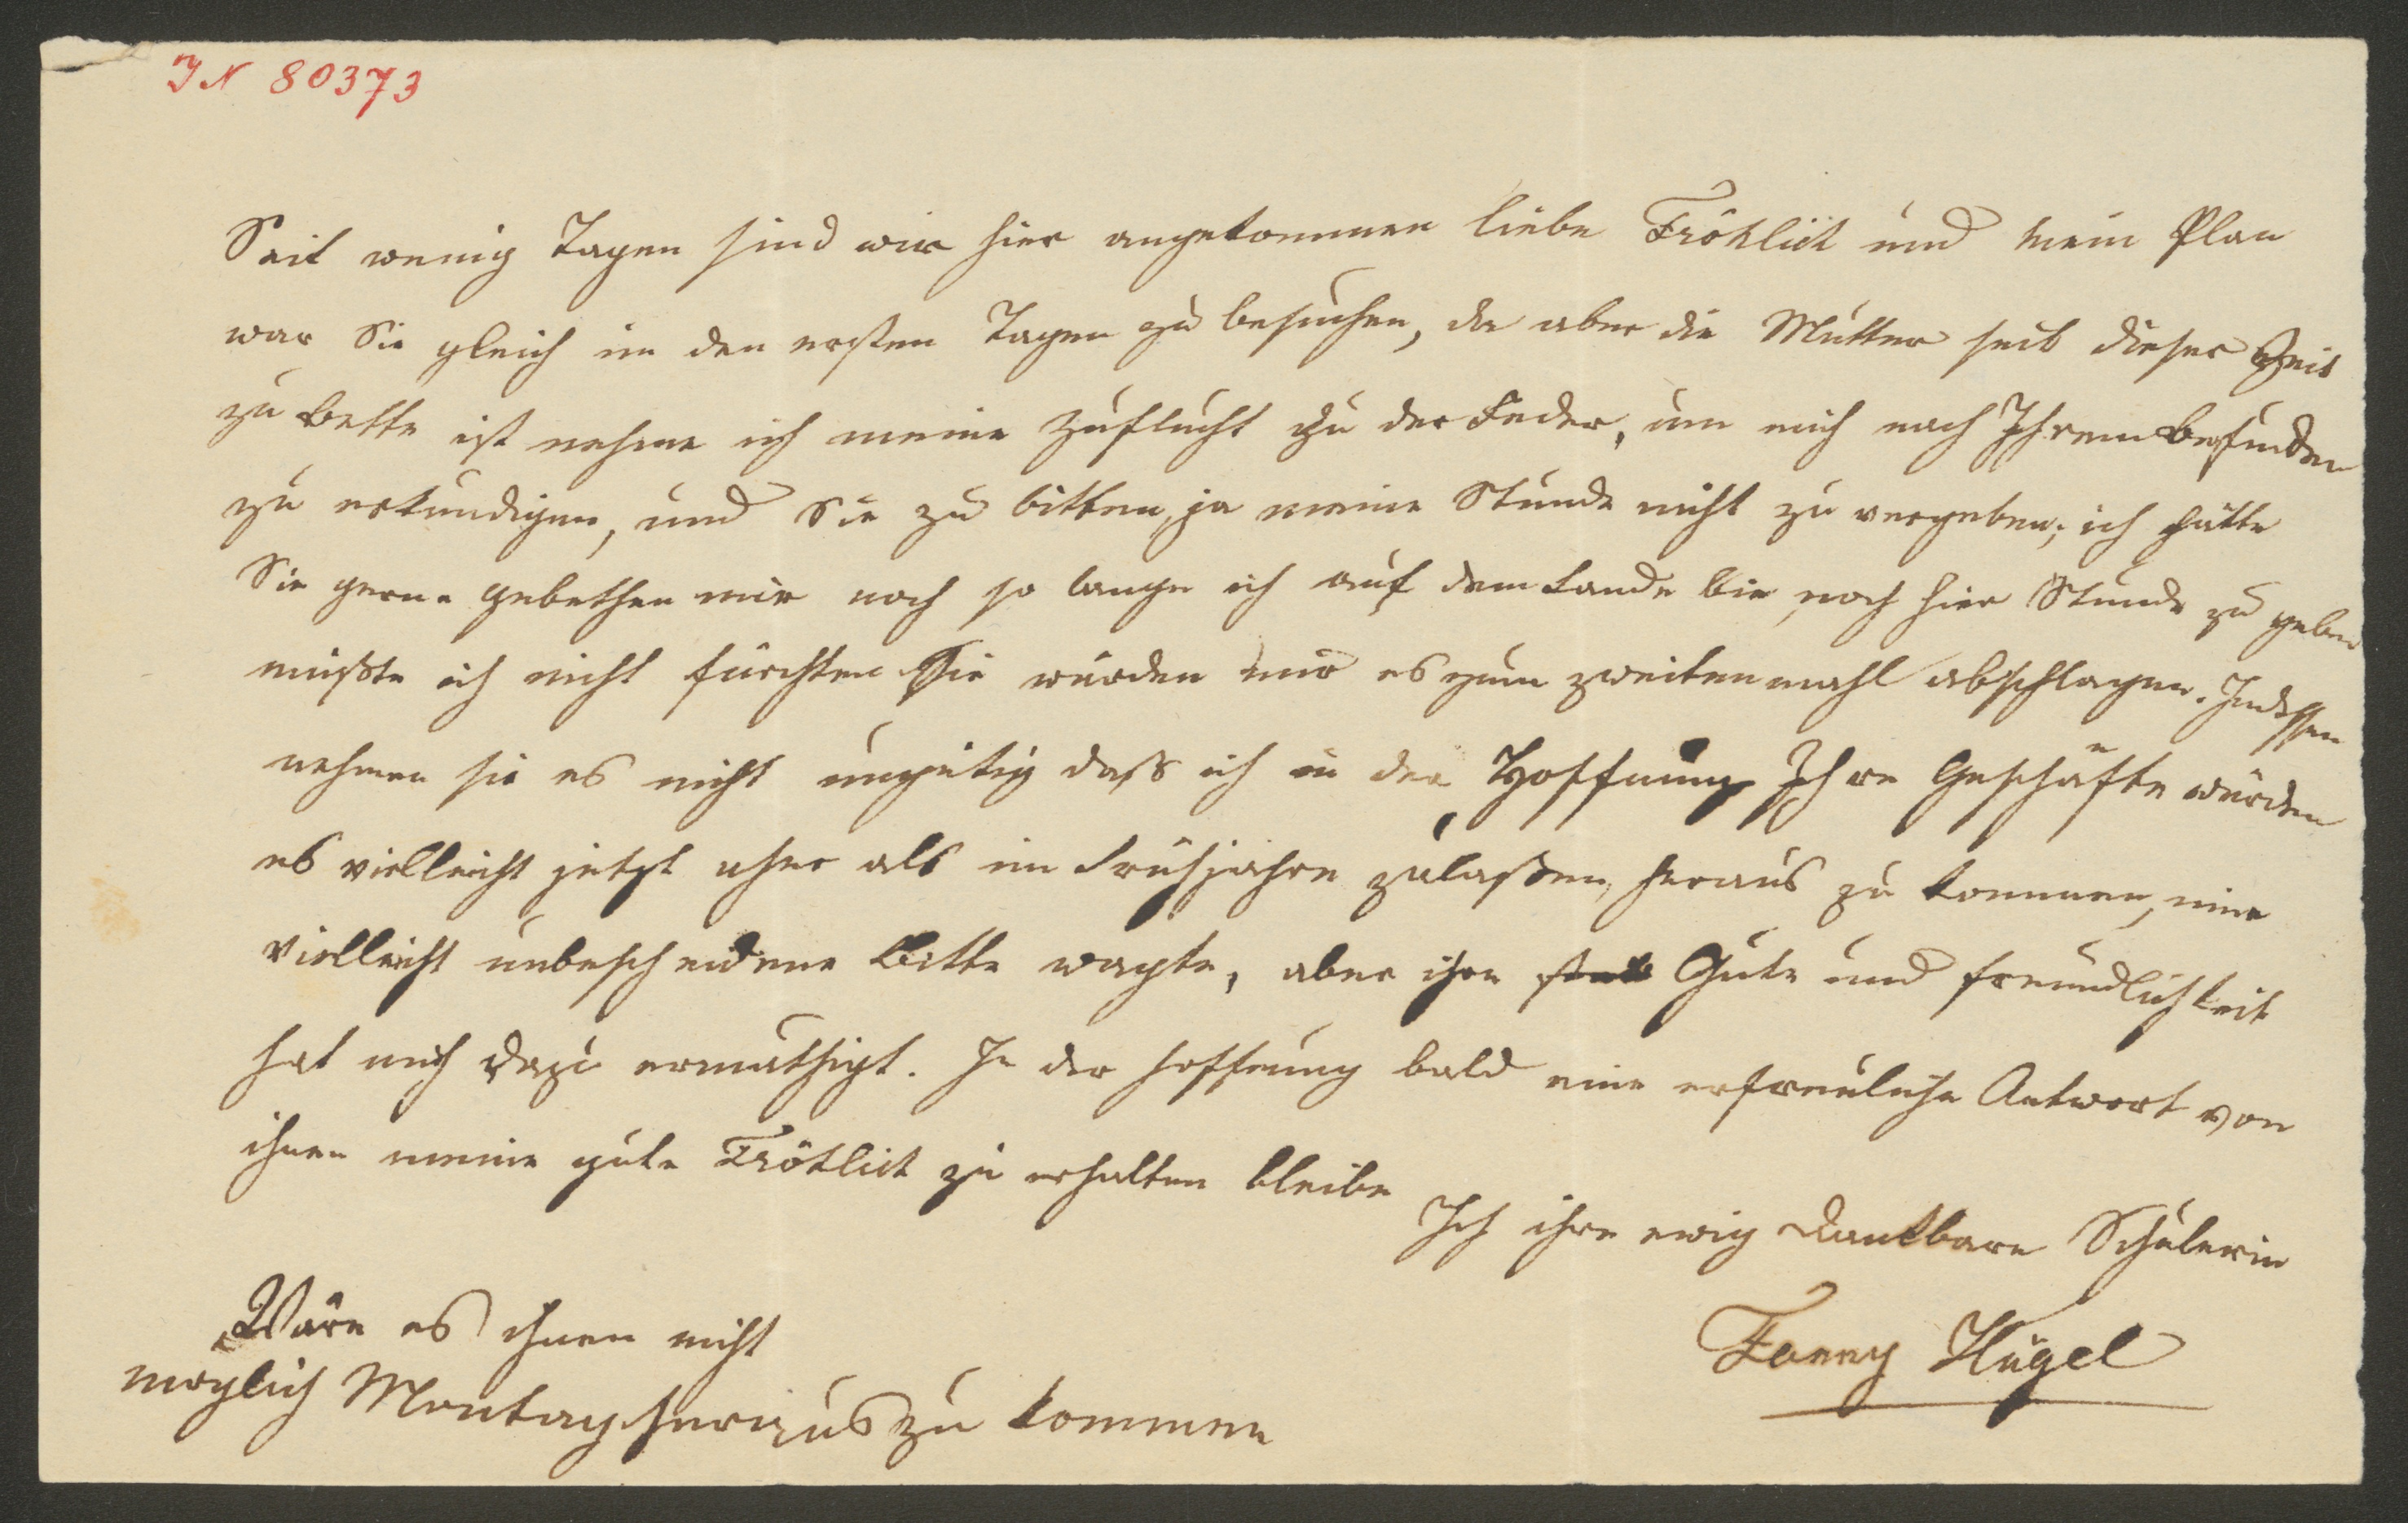 IN 80373
Seit wenig Tagen sind wir hier angekommen liebe Fröhlich und mein Plan
war Sie gleich in den ersten Tagen zu besuchen, da aber die Mutter seit dieser Zeit
zu Bette ist nehme ich meine Zuflucht zu der Feder, um mich nach Ihrem Befinden
zu erkundigen, und Sie zu bitten, ja meine Stunde nicht zu vergeben; ich hätte
Sie gerne gebethen mir noch so lange ich auf dem Lande bin, noch hier Stunde zu geben
müßte ich nicht fürchten Sie würden mir es zum zweitenmahl abschlagen. Indessen
nehmen sie es nicht ungütig daß ich in der Hoffnung Ihre Geschäfte würden
es vielleicht jetzt eher als im Frühjahre zulaßen, heraus zu kommen, eine
vielleicht unbescheidene Bitte wagte, aber ihre Güte und Freundlichkeit
hat mich dazu ermuthigt. In der Hoffnung bald eine erfreuliche Antwort von
ihnen meine gute Fröhlich zu erhalten bleibe
Ich ihre ewig dankbare Schülerin
Fanny Hügel
Wäre es ihnen nicht
möglich Montag heraus zu kommen